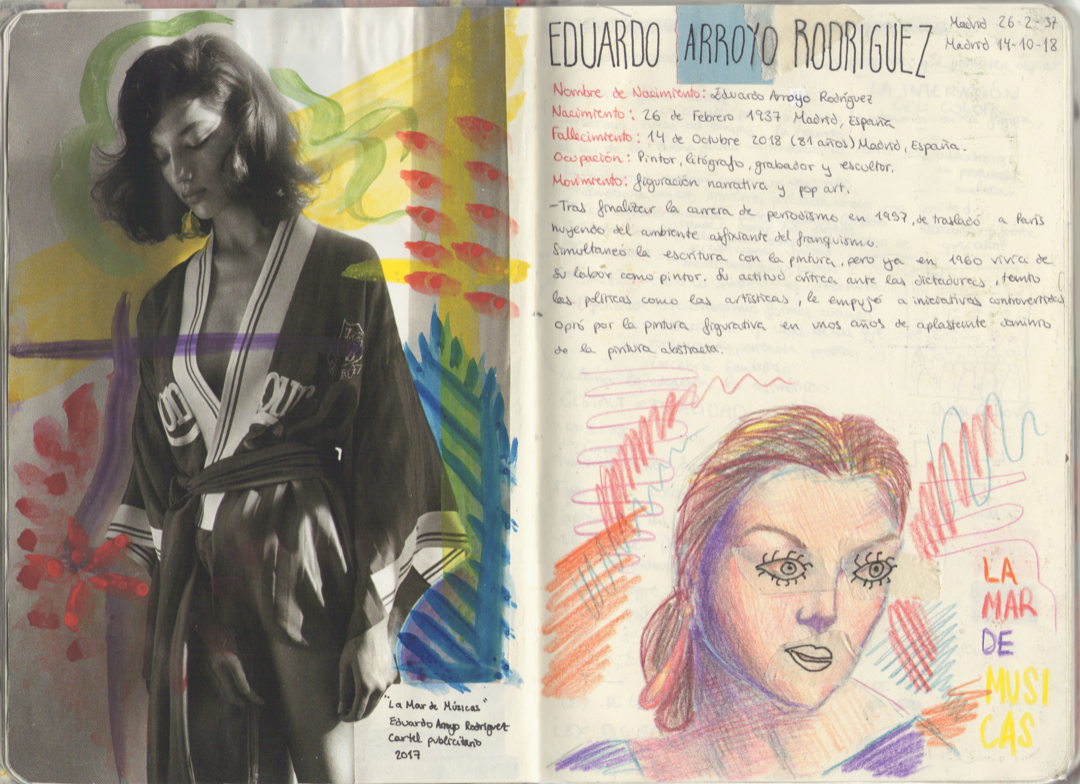 EDUARDO ARROYO RODRIGUEZ
Madrid 26-2-37
Madrid 14-10-18
Nombre de Nacimiento: Eduardo Arroyo Rodríguez
Nacimiento: 26 de Febrero 1937 Madrid, España
Fallecimiento: 14 de Octubre 2018 (81 años) Madrid, España.
Ocupación: Pintor, litógrafo, grabador y escultor.
Movimiento: figuración narrativa y pop art.
-Tras finalizar la carrera de periodismo en 1997, de trasladó a París
huyendo del ambiente asfixiante del franquismo.
Simultaneó la escritura con la pintura, pero ya en 1960 vivía de
su labor como pintor. Su actitud crítica ante las dictaduras, tanto
las políticas como las artísticas, le empujó a iniciativas controvertidas
Optó por la pintura figurativa en unos años de aplastante dominio
de la pintura abstracta.
LA
MAR
DE
MUSI
CAS
"La Mar de Músicas"
Eduardo Arroyo Rodríguez
Cartel publicitario
2017